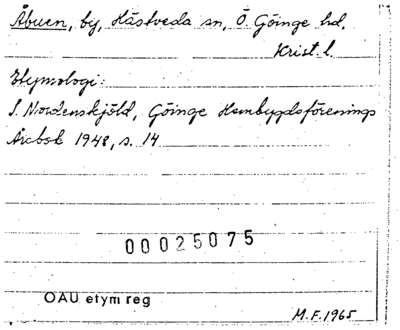 Åbuen, by, Hästveda sn, Ö. Göinge hd.
Krist. l.
Etymologi:
S. Nordenskjöld, Göinge Hembygdsförenings
Årsbok 1948, s. 14
00025075
OAU etym reg
M.F. 1965